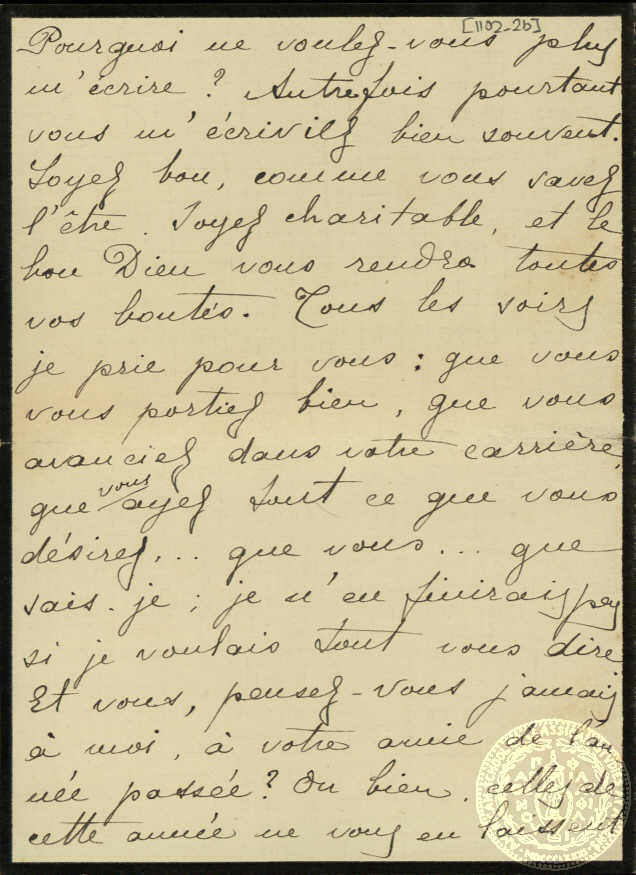 [1102-2b]
Pourquoi ne voulez-vous plus
m'écrire ? Autrefois pourtant
vous m'écriviez bien souvent.
Soyez bon, comme vous savez
l'être. Soyez charitable, et le
bon Dieu vous rendra toutes
vos bontés. Tous les soirs
je prie pour vous : que vous
vous portiez bien, que vous
avanciez dans votre carrière,
que vous ayez tout ce que vous
désirez... que vous... que
sais-je ; je n'en finirais pas
si je voulais tout vous dire
Et vous, pensez-vous jamais
à moi, à votre amie de l'an-
née passée ? Ou bien, celles de
cette année ne vous en laissent